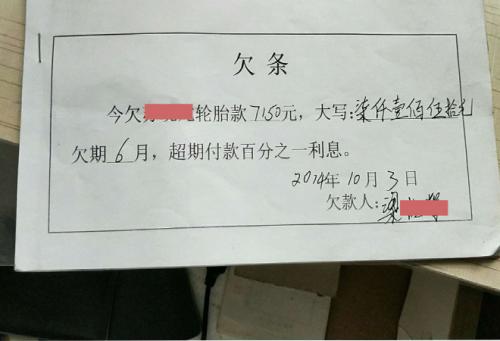 欠条
今欠轮胎款7150元，大写：柒仟壹佰伍拾元
欠期6月，超期付款百分之一利息。
2014年10月3日
欠款人：梁